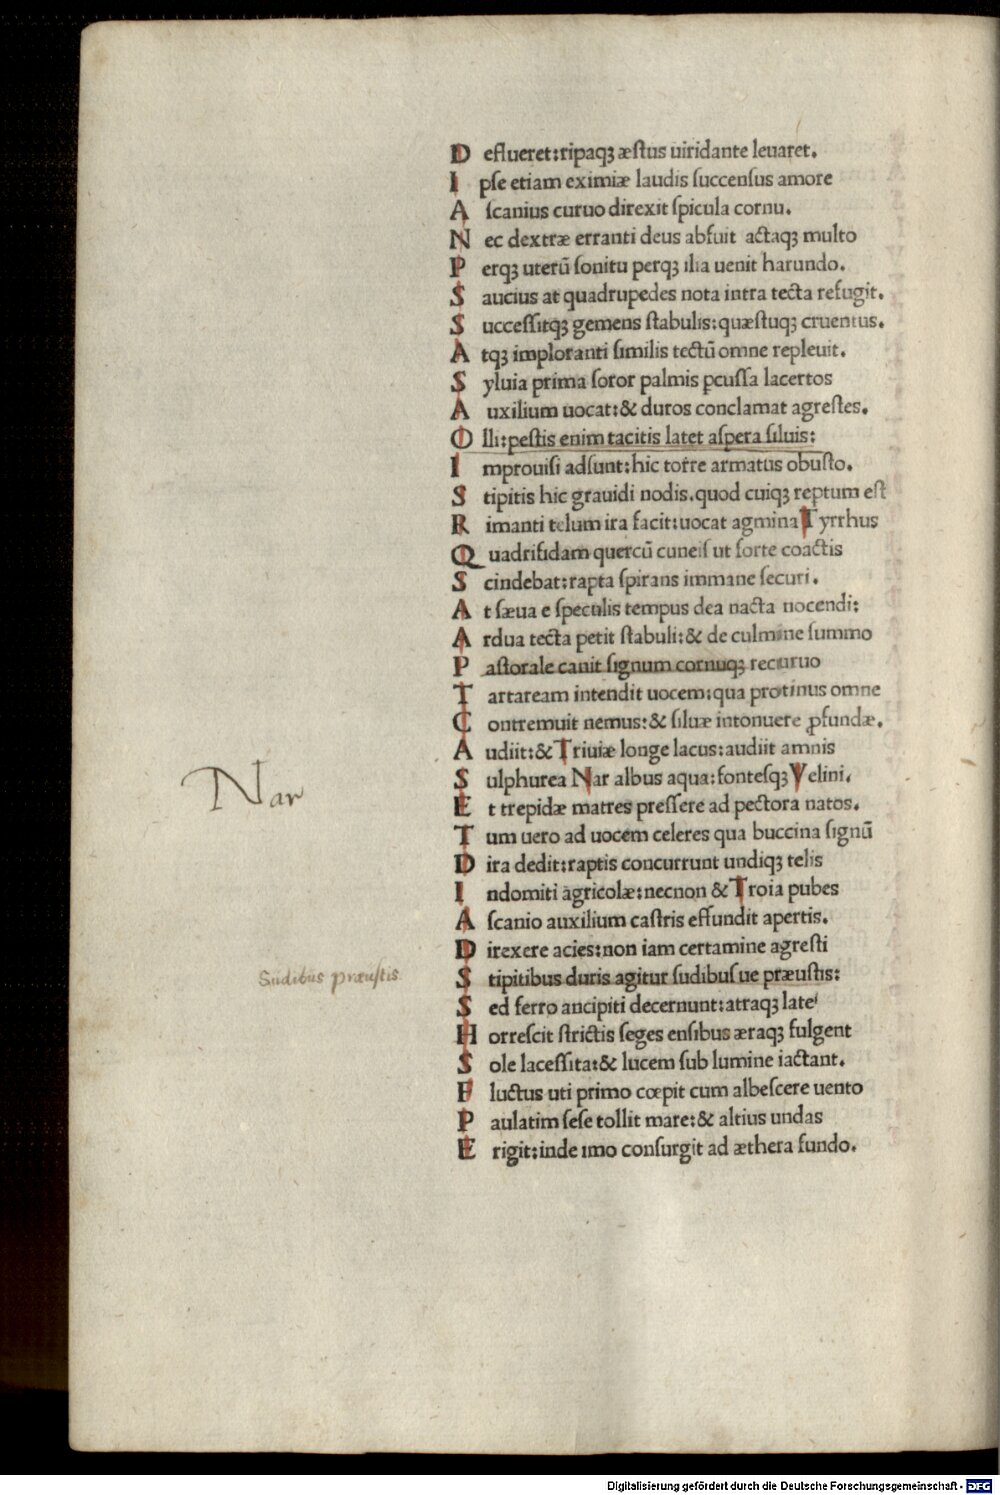 Deflueret:ripaqꝫ æſtus uiridante leuaret.
Ipſe etiam eximiæ laudis ſuccenſus amore
Aſcanius curuo direxit ſpicula cornu.
Nec dextræ erranti deus abfuit actaqꝫ multo
Perqꝫ uterū ſonitu perqꝫ ilia uenit harundo.
Saucius at quadrupedes nota intra tecta refugit.
Succeſſitqꝫ gemens ſtabulis:quæſtuqꝫ cruentus.
Atqꝫ imploranti ſimilis tectū omne repleuit.
Syluia prima ſoror palmis ꝑcuſſa lacertos
Auxilium uocat:& duros conclamat agreſtes.
Olli:peſtis enim tacitis latet aſpera ſiluis:
Improuiſi adſunt:hic torre armatus obuſto.
Stipitis hic grauidi nodis.quod cuiqꝫ reptum eſt
Rimanti telum ira facit:uocat agmina Tyrrhus
Quadrifidam quercū cuneiſ ut forte coactis
Scindebat:rapta ſpirans immane ſecuri.
At ſæua e ſpeculis tempus dea nacta nocendi:
Ardua tecta petit ſtabuli:& de culmine ſummo
Paſtorale canit ſignum cornuqꝫ recuruo
Tartaream intendit uocem:qua protinus omne
Contremuit nemus:& ſiluæ intonuere ꝓfundæ.
Audiit:& Triuiæ longe lacus:audiit amnis
Nar
Sulphurea Nar albus aqua:fonteſqꝫ Velini.
Et trepidæ matres preſſere ad pectora natos.
Tum uero ad uocem celeres qua buccina ſignū
Dira dedit:raptis concurrunt undiqꝫ telis
Indomiti agricolæ:necnon & Troia pubes
Aſcanio auxilium caſtris effundit apertis.
Direxere acies:non iam certamine agreſti
Sudibus præuſtis
Stipitibus duris agitur ſudibuſ ue præuſtis:
Sed ferro ancipiti decernunt:atraqꝫ late
Horreſcit ſtrictis ſeges enſibus æraqꝫ fulgent
Sole laceſſita:& lucem ſub lumine iactant.
Fluctus uti primo cœpit cum albeſcere uento
Paulatim ſeſe tollit mare:& altius undas
Erigit:inde imo conſurgit ad æthera fundo.
Digitalisierung gefördert durch die Deutsche Forschungsgemeinschaft - DFG